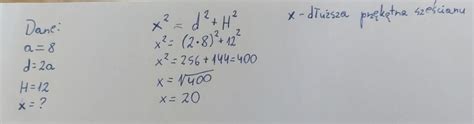 Dane:
a = 8
d = 2a
H = 12
x = ?
x² = d² + H²
x² = (2·8)² + 12²
x² = 256 + 144 = 400
x = √400
x = 20
x - dłuższa przękątna sześcianu